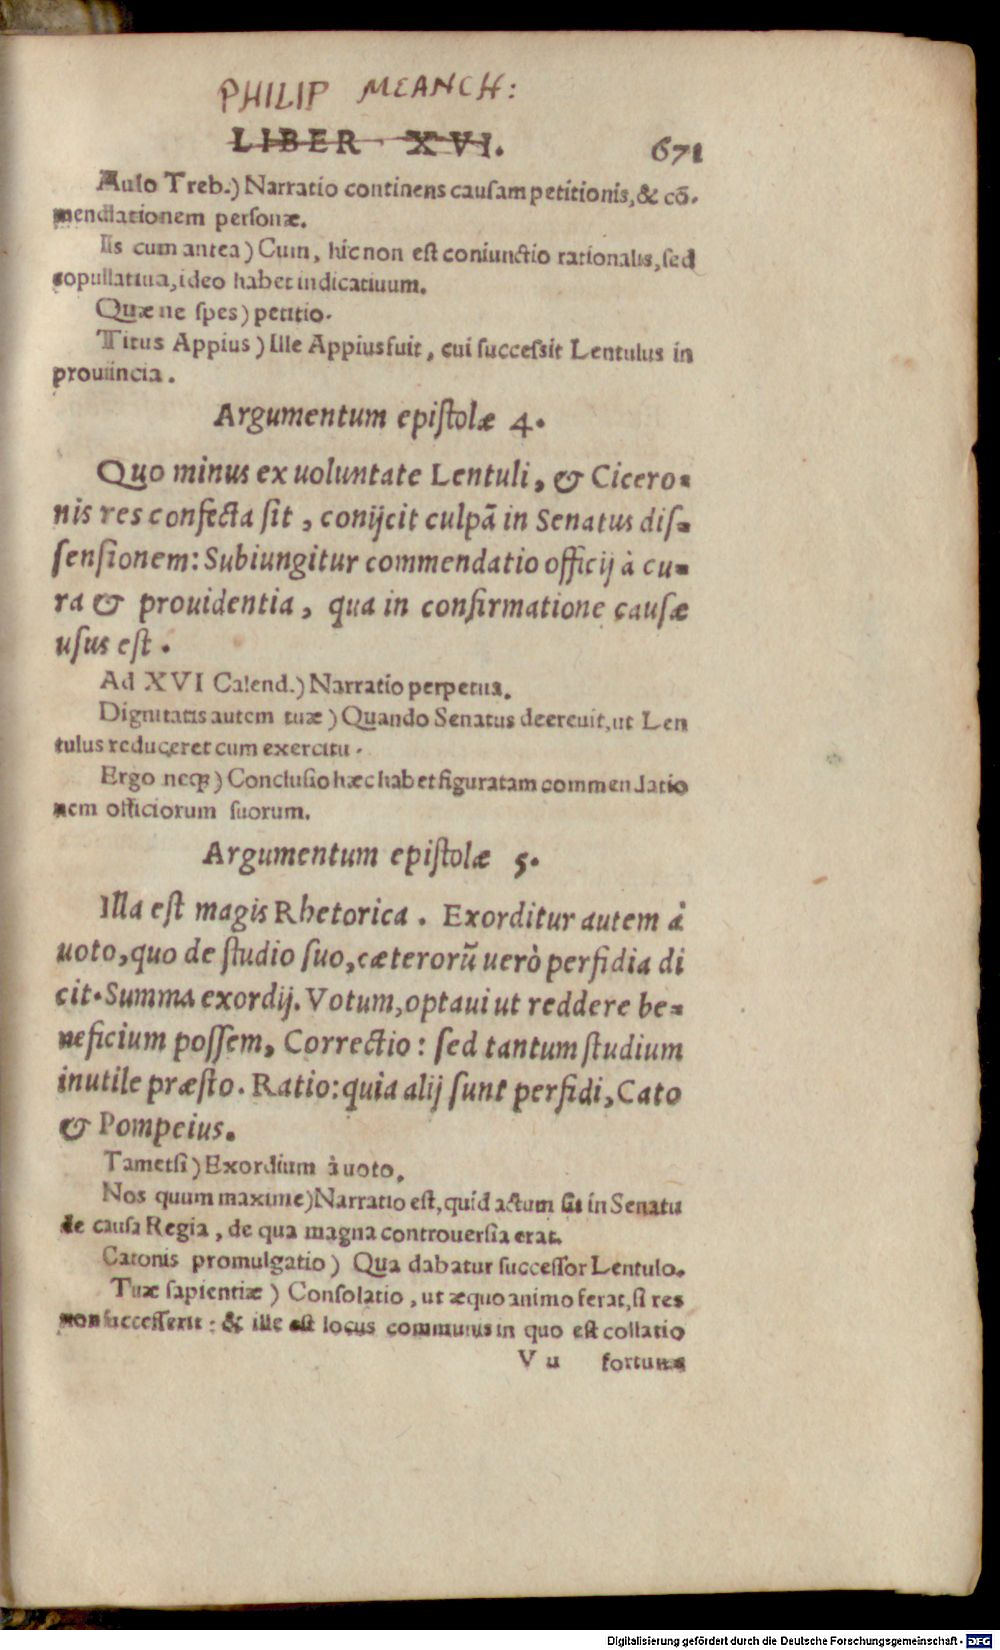 PHILIP MEANCH:
LIBER XVI. 671
Aulo Treb.) Narratio continens causam petitionis, & cō-
mendationem personæ.
Iis cum antea) Cum, hic non est coniunctio rationalis, sed
copullatiua, ideo habet indicatiuum.
Quæ ne spes) petitio.
Titus Appius) Ille Appius fuit, cui successit Lentulus in
prouiincia.
Argumentum epistolæ 4.
Quo minus ex uoluntate Lentuli, & Cicero-
nis res confecta sit, conijcit culpā in Senatus dis-
sensionem: Subiungitur commendatio officij à cu-
ra & prouidentia, qua in confirmatione causæ
usus est.
Ad XVI Calend.) Narratio perpetua.
Dignitatis autem tuæ) Quando Senatus decreuit, ut Len
tulus reduceret cum exercitu.
Ergo neq;) Conclusio hæc habet figuratam commendatio
nem officiorum suorum.
Argumentum epistolæ 5.
Illa est magis Rhetorica. Exorditur autem à
uoto, quo de studio suo, cæterorū uerò perfidia di
cit. Summa exordij. Votum, optaui ut reddere be-
neficium possem, Correctio: sed tantum studium
inutile præsto. Ratio: quia alij sunt perfidi, Cato
& Pompeius.
Tametsi) Exordium à uoto.
Nos quum maxime) Narratio est, quid actum sit in Senatu
de causa Regia, de qua magna controuersia erat.
Catonis promulgatio) Qua dabatur successor Lentulo.
Tuæ sapientiæ) Consolatio, ut æquo animo ferat, si res
non successerit: & ille est locus communis in quo est collatio
V u fortunæ
Digitalisierung gefördert durch die Deutsche Forschungsgemeinschaft - DFG